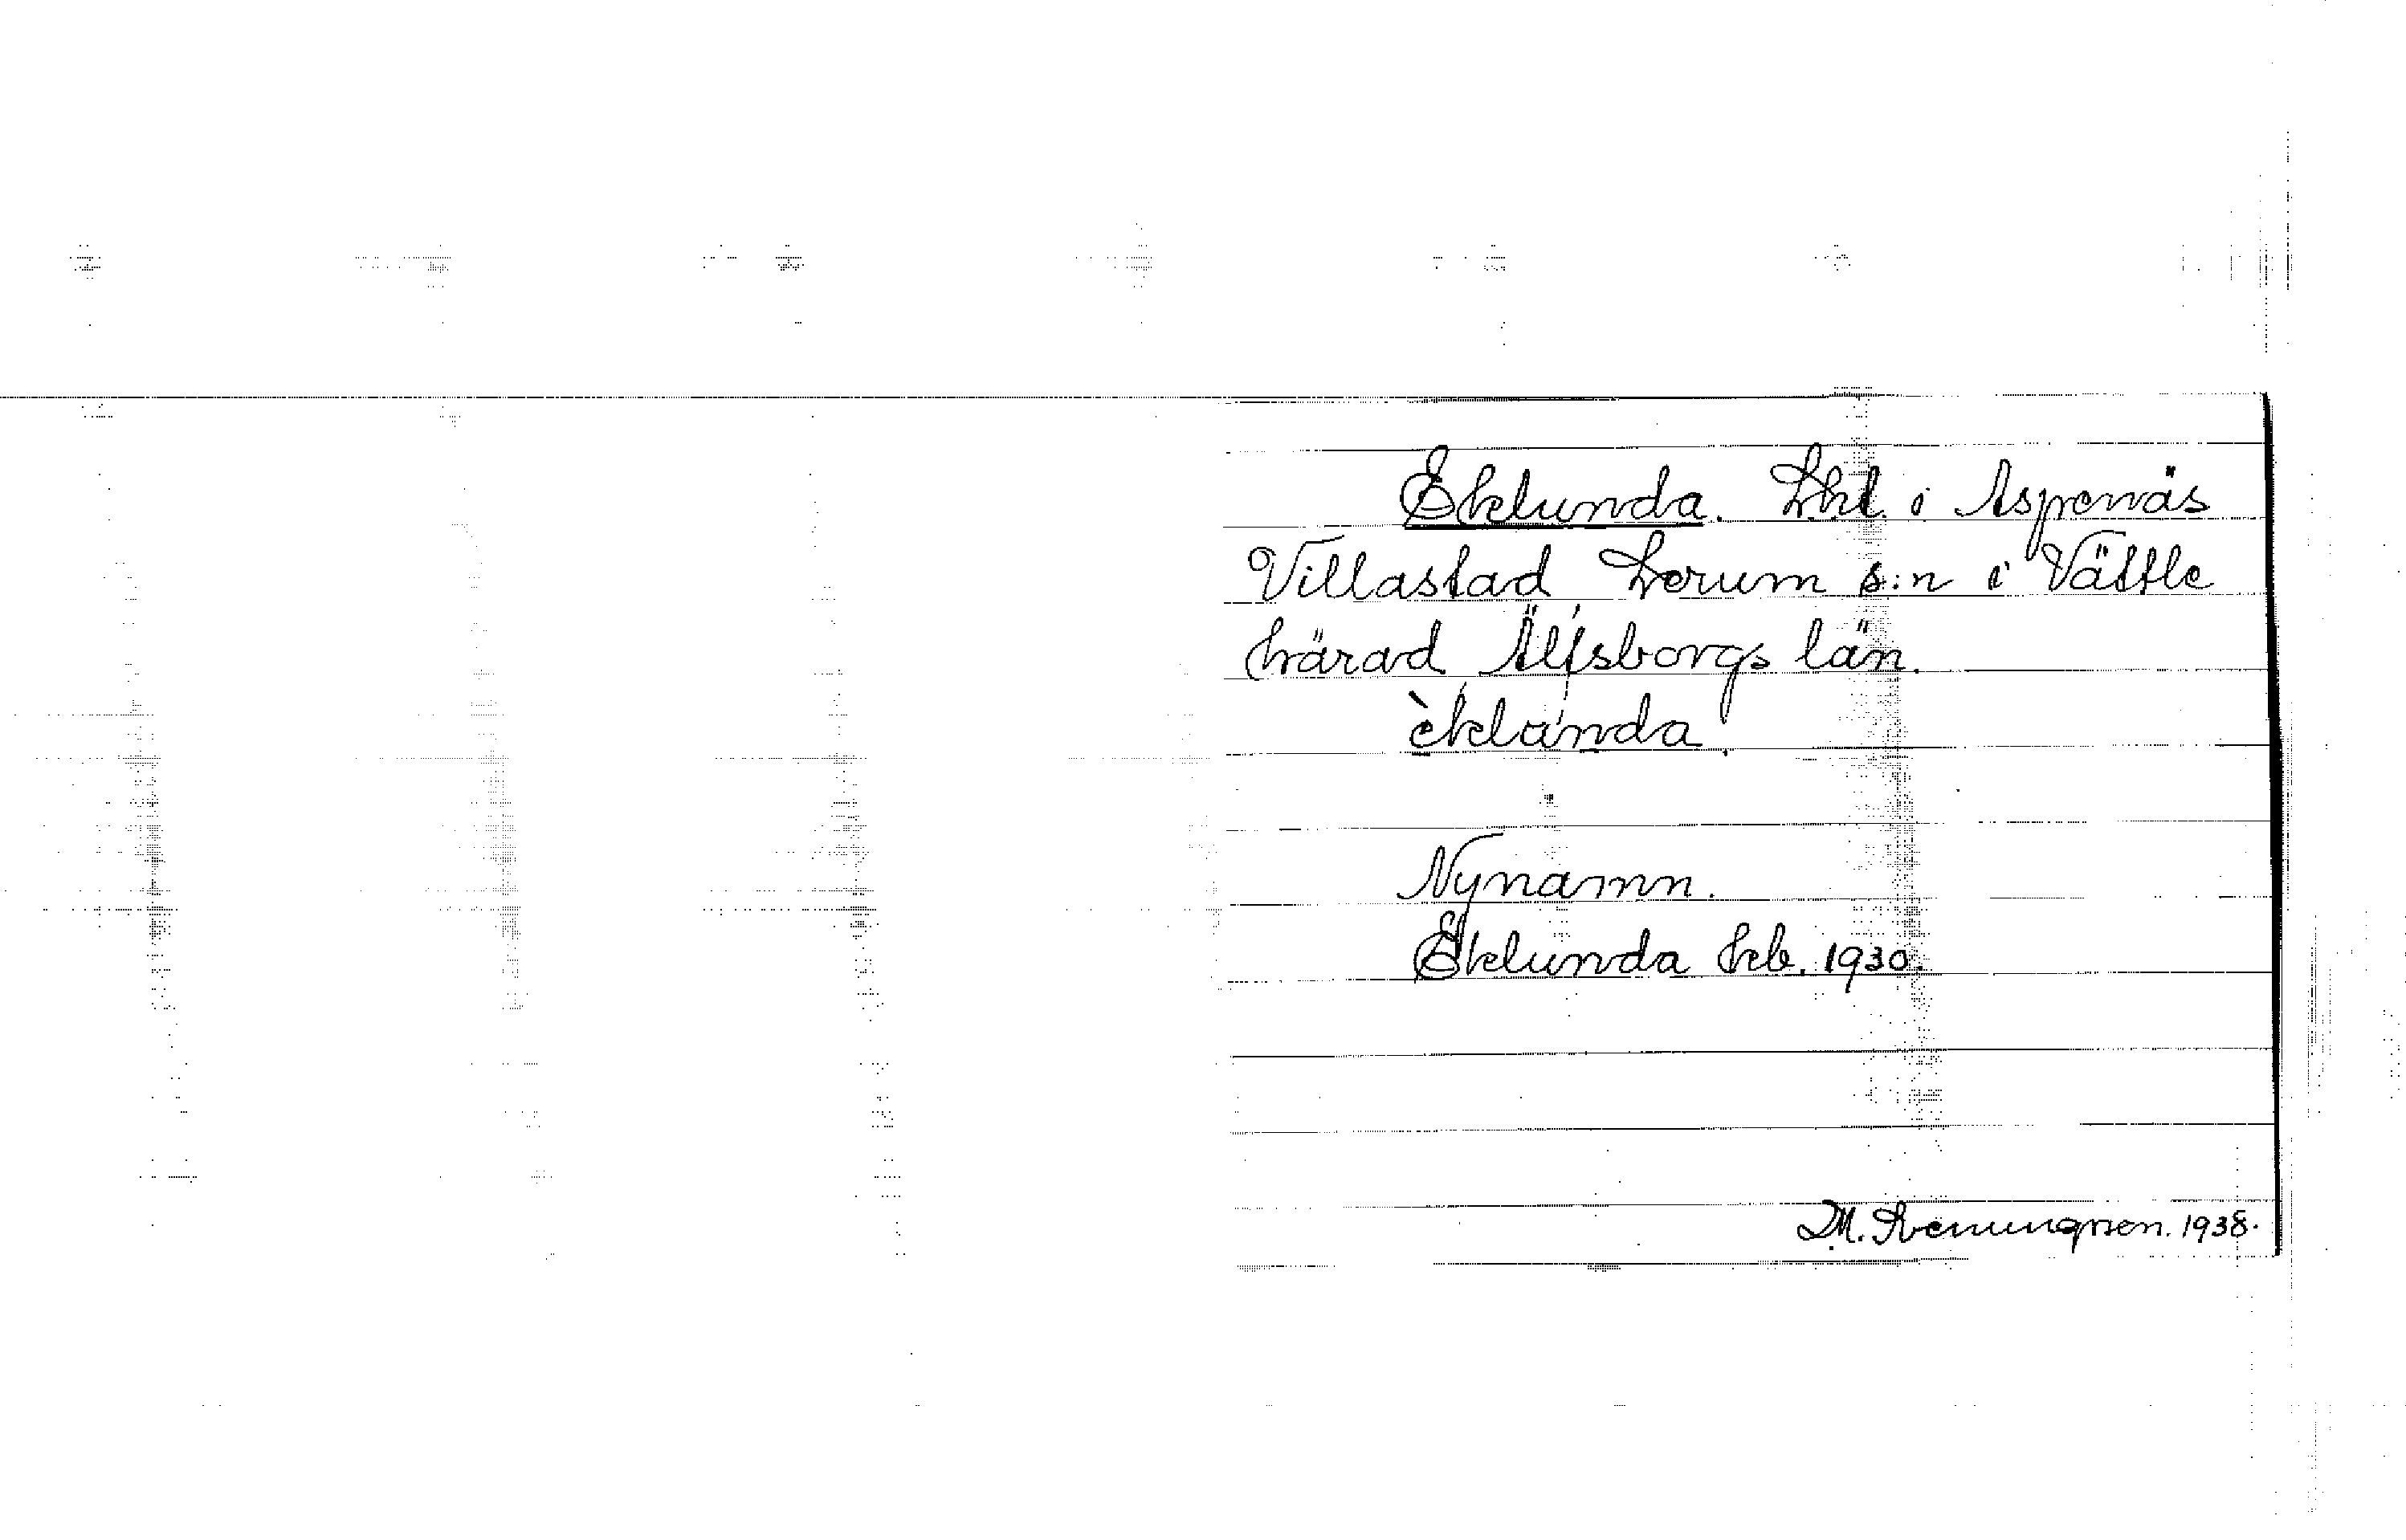 Eklunda. Lht. i Aspenäs
Villastad Lerum s:n i Vättle
härad Älfsborgs län.
èklánda.
Nynamn.
Eklunda Jrb. 1930.
M. 1938.